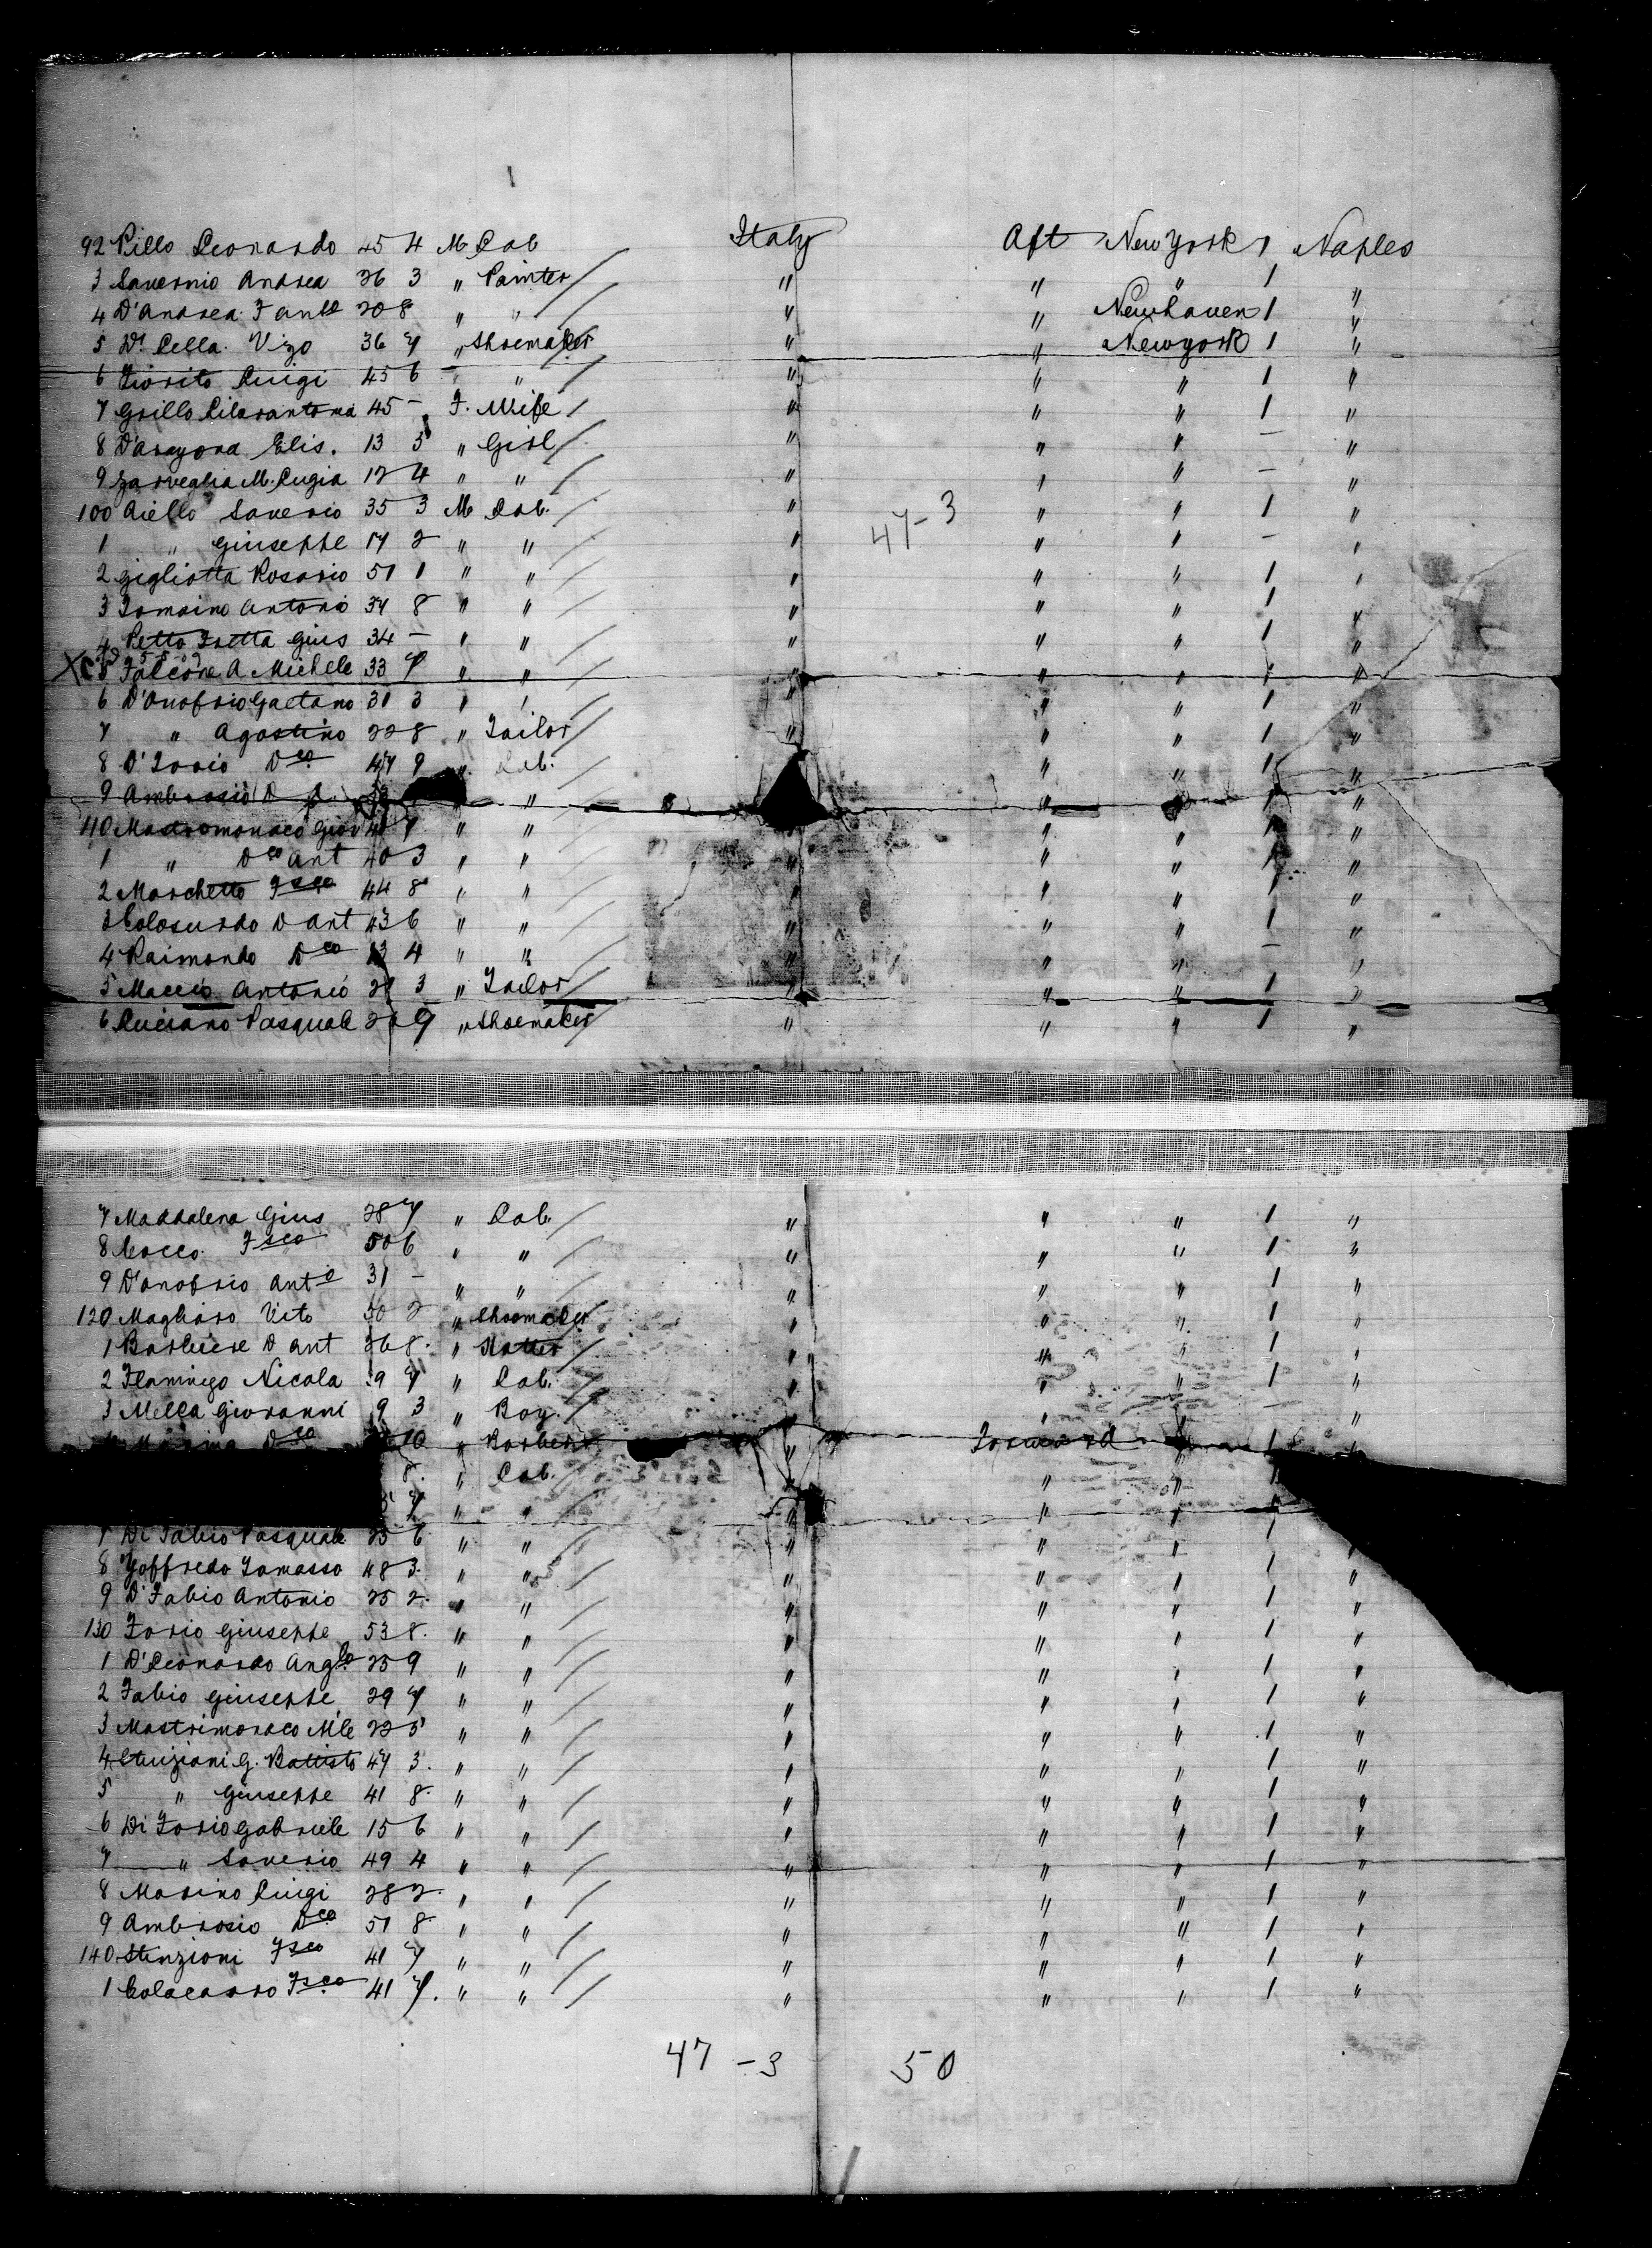 92 Lillo Leonardo 45 4 M Lab Italy Aft New York 1 Naples
3 Savernio Andrea 26 3 " Painter / " " " 1 "
4 D'Andrea F Ant 20 8 " " / " " Newhaven 1 "
5 Di Lella Vizo 36 7 " Shoemaker " " Newyork 1 "
6 Fiorito Luigi 45 6 " " / " " " 1 "
7 Grillo 45 - F. Wife / " " " 1 "
8 D'Aragona Elis. 13 5 " Girl / " " " - "
9 M. Lugia 12 4 " " / " " " - "
100 Aiello Saverio 35 3 M Lab. / " " " 1 "
1 " Giuseppe 17 2 " " / " 47-3 " " - "
2 Gigliotta Rosario 51 1 " " / " " " 1 "
3 Tomaino Antonio 37 8 " " / " " " 1 "
4 Petto Fretta Gius 34 - " " / " " " 1 "
5 Falcone A Michele 33 7 " " / " " " 1 "
6 D'Onofrio Gaetano 31 3 " " / " " " 1 "
7 " Agostino 22 8 " Tailor / " " " 1 "
8 D'Iorio Dco 47 9 " Lab. / " " " 1 "
9 Ambrosio D " " " " 1 "
110 Mastromonaco Giov 7 " " / " " " 1 "
1 " Dco Ant 40 3 " " / " " " 1 "
2 Marchetto Fsco 44 8 " " / " " " 1 "
3 Colosurdo D Ant 43 6 " " / " " " 1 "
4 Raimondo Dco 13 4 " " / " " " - "
5 Maccio Antonio 21 3 " Tailor / " " " 1 "
6 Luciano Pasquale 9 " Shoemaker / " " " 1 "
7 Maddalena Gius 28 7 " Lab. / " " " 1 "
8 Cocco Fsco 50 6 " " / " " " 1 "
9 D'Onofrio Anto 31 - " " / " " " 1 "
120 Magliaro Vito 50 2 " Shoemaker " " " 1 "
1 Barbiere D Ant 26 8. " Hatter / " " " 1 "
2 Flamingo Nicola 9 7 " Lab. / " " " 1 "
3 Mella Giovanni 9 3 " Boy. / " " " - "
Dco 10 " Barber " Forward " 1 "
8. " Lab. / " " " 1
7 " " / " " " 1
7 Di Fabio Pasquale 25 6 " " / " " " 1 "
8 Goffredo Tomasso 48 3. " " / " " " 1 "
9 D'Fabio Antonio 25 2. " " / " " " 1 "
130 Iorio Giuseppe 53 8. " " / " " " 1 "
1 D'Leonardo Anglo 25 9 " " / " " " 1 "
2 Fabio Giuseppe 29 7 " " / " " " 1 "
3 Mastrimonaco Mle 22 5 " " / " " " 1 "
4 G. Battisto 47 3. " " / " " " 1 "
5 " Giuseppe 41 8. " " / " " " 1 "
6 Di Iorio Gabriele 15 6 " " / " " " 1 "
7 " Saverio 49 4 " " / " " " 1 "
8 Marino Luigi 28 2. " " / " " " 1 "
9 Ambrosio Dco 51 8. " " / " " " 1 "
140 Stenzioni Fsco 41 7 " " / " " " 1 "
1 Colacarro Fsco 41 7. " " / " " " 1 "
47 - 3 50